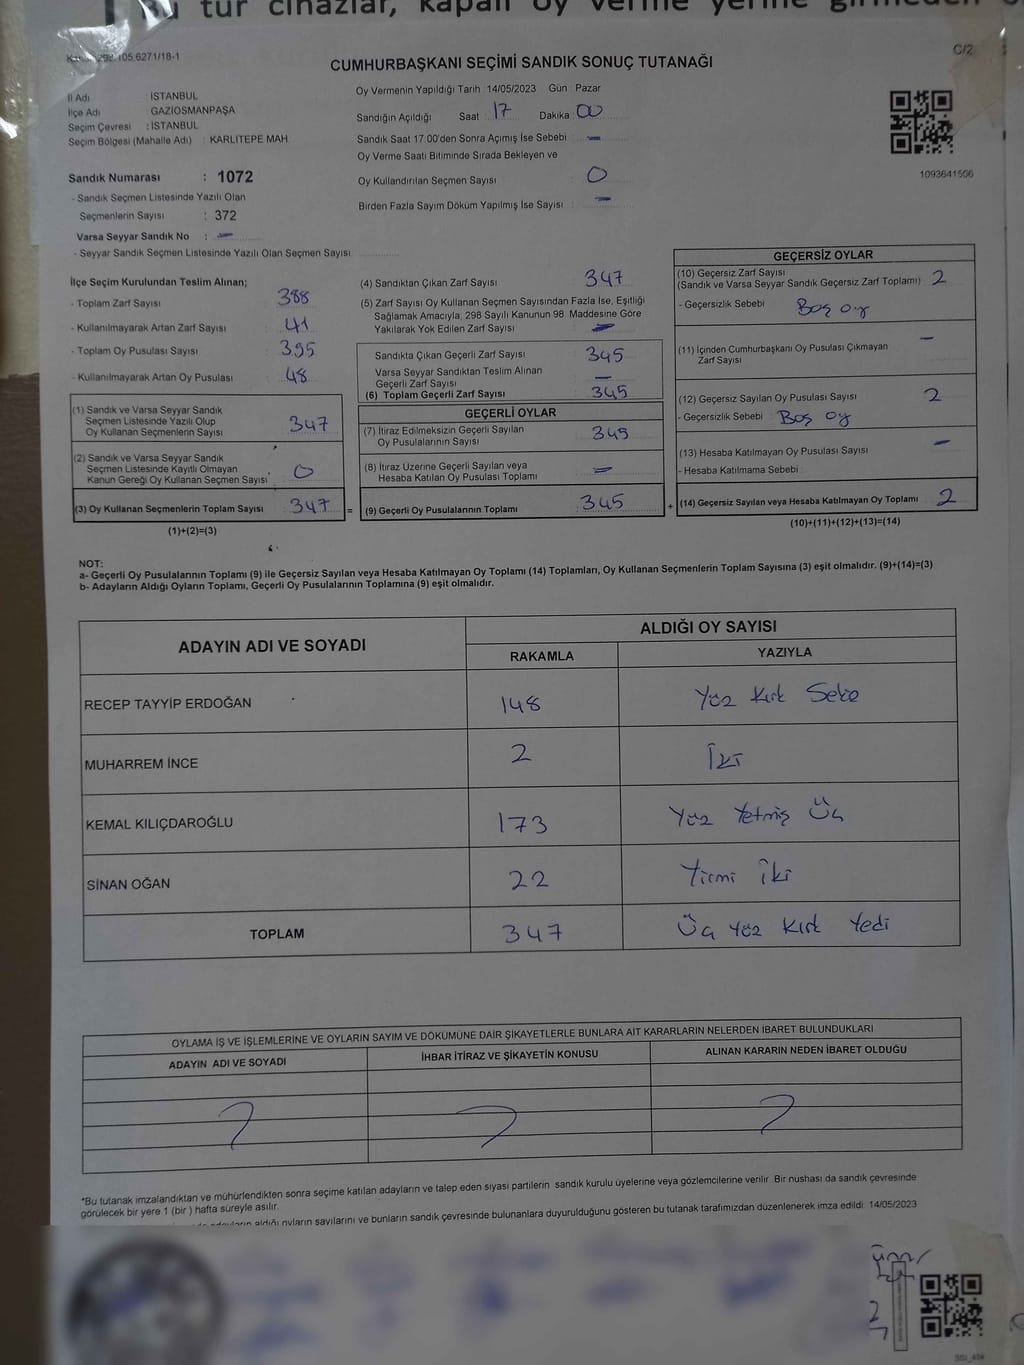 Bu tür cihazlar, kapalı oy verme yerine girmeden
298-105.6271/18-1
C/2
CUMHURBAŞKANI SEÇİMİ SANDIK SONUÇ TUTANAĞI
İl Adı : İSTANBUL
İlçe Adı GAZİOSMANPAŞA
Seçim Çevresi : İSTANBUL
Seçim Bölgesi (Mahalle Adı) : KARLITEPE MAH
Oy Vermenin Yapıldığı Tarih 14/05/2023 Gün Pazar
Sandığın Açıldığı Saat 17 Dakika 00
Sandık Saat 17:00'den Sonra Açımış İse Sebebi –
Oy Verme Saati Bitiminde Sırada Bekleyen ve
Oy Kullandırılan Seçmen Sayısı 0
Birden Fazla Sayım Döküm Yapılmış İse Sayısı : –
1093641506
Sandık Numarası : 1072
- Sandık Seçmen Listesinde Yazılı Olan
Seçmenlerin Sayısı : 372
Varsa Seyyar Sandık No : –
- Seyyar Sandık Seçmen Listesinde Yazılı Olan Seçmen Sayısı
İlçe Seçim Kurulundan Teslim Alınan;
- Toplam Zarf Sayısı : 388
- Kullanılmayarak Artan Zarf Sayısı : 41
- Toplam Oy Pusulası Sayısı : 395
- Kullanılmayarak Artan Oy Pusulası : 48
(1) Sandık ve Varsa Seyyar Sandık
Seçmen Listesinde Yazılı Olup
Oy Kullanan Seçmenlerin Sayısı 347
(2) Sandık ve Varsa Seyyar Sandık
Seçmen Listesinde Kayıtlı Olmayan
Kanun Gereği Oy Kullanan Seçmen Sayısı 0
(3) Oy Kullanan Seçmenlerin Toplam Sayısı 347 =
(1)+(2)=(3)
(4) Sandıktan Çıkan Zarf Sayısı 347
(5) Zarf Sayısı Oy Kullanan Seçmen Sayısından Fazla İse, Eşitliği
Sağlamak Amacıyla, 298 Sayılı Kanunun 98. Maddesine Göre
Yakılarak Yok Edilen Zarf Sayısı –
Sandıkta Çıkan Geçerli Zarf Sayısı 345
Varsa Seyyar Sandıktan Teslim Alınan
Geçerli Zarf Sayısı –
(6) Toplam Geçerli Zarf Sayısı 345
GEÇERLİ OYLAR
(7) İtiraz Edilmeksizin Geçerli Sayılan
Oy Pusulalarının Sayısı 345
(8) İtiraz Üzerine Geçerli Sayılan veya
Hesaba Katılan Oy Pusulası Toplamı –
(9) Geçerli Oy Pusulalarının Toplamı 345 +
GEÇERSİZ OYLAR
(10) Geçersiz Zarf Sayısı
(Sandık ve Varsa Seyyar Sandık Geçersiz Zarf Toplamı) : 2
- Geçersizlik Sebebi Boş oy
(11) İçinden Cumhurbaşkanı Oy Pusulası Çıkmayan
Zarf Sayısı –
(12) Geçersiz Sayılan Oy Pusulası Sayısı 2
- Geçersizlik Sebebi Boş oy
(13) Hesaba Katılmayan Oy Pusulası Sayısı –
- Hesaba Katılmama Sebebi
(14) Geçersiz Sayılan veya Hesaba Katılmayan Oy Toplamı 2
(10)+(11)+(12)+(13)=(14)
NOT:
a- Geçerli Oy Pusulalarının Toplamı (9) ile Geçersiz Sayılan veya Hesaba Katılmayan Oy Toplamı (14) Toplamları, Oy Kullanan Seçmenlerin Toplam Sayısına (3) eşit olmalıdır. (9)+(14)=(3)
b- Adayların Aldığı Oyların Toplamı, Geçerli Oy Pusulalarının Toplamına (9) eşit olmalıdır.
ADAYIN ADI VE SOYADI ALDIĞI OY SAYISI
RAKAMLA YAZIYLA
RECEP TAYYİP ERDOĞAN 148 Yüz Kırk Sekiz
MUHARREM İNCE 2 İki
KEMAL KILIÇDAROĞLU 173 Yüz Yetmiş Üç
SİNAN OĞAN 22 Yirmi iki
TOPLAM 347 Üç yüz Kırk Yedi
OYLAMA İŞ VE İŞLEMLERİNE VE OYLARIN SAYIM VE DÖKÜMÜNE DAİR ŞİKAYETLERLE BUNLARA AİT KARARLARIN NELERDEN İBARET BULUNDUKLARI
ADAYIN ADI VE SOYADI İHBAR İTİRAZ VE ŞİKAYETİN KONUSU ALINAN KARARIN NEDEN İBARET OLDUĞU
*Bu tutanak imzalandıktan ve mühürlendikten sonra seçime katılan adayların ve talep eden siyasi partilerin sandık kurulu üyelerine veya gözlemcilerine verilir. Bir nushası da sandık çevresinde
görülecek bir yere 1 (bir ) hafta süreyle asılır.
adayların aldığı oyların sayılarını ve bunların sandık çevresinde bulunanlara duyurulduğunu gösteren bu tutanak tarafımızdan düzenlenerek imza edildi. 14/05/2023